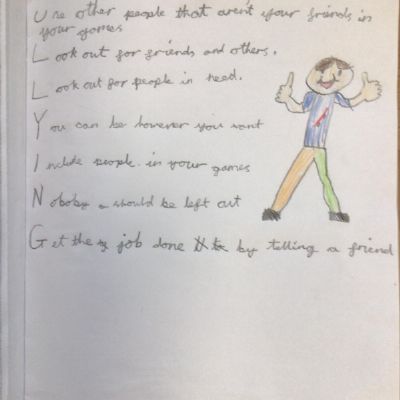 Use other people that arent your friends in
your games
Look out for friends and others.
Look out for people in need.
You can be however you want
Include people in your games
Noboby should be left out
Get the job done by telling a friend